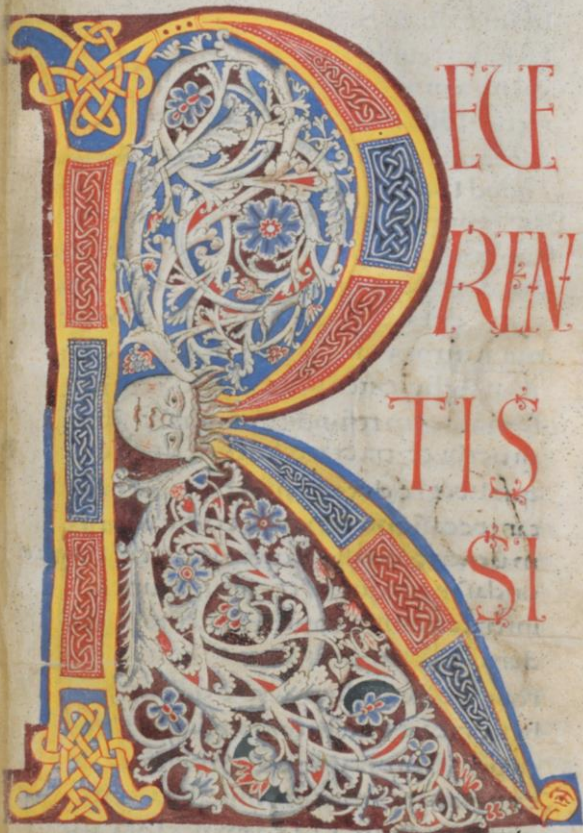 R
EVE
REN
TIS
SI